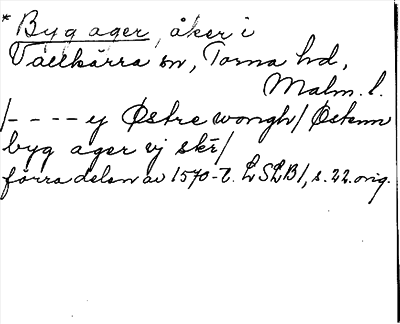 *Byg ager, åker i
Vallkärra sn, Torna hd,
Malm. l.
/- - - - ej Østre wongh/ Østenn
byg ager vj skr/
förra delen av 1570-t. LSLB1, s. 22 orig.